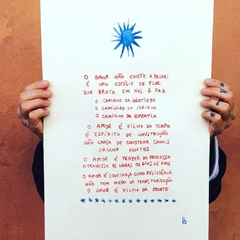 O AMOR NÃO EXISTE A PRIORI
É UMA ESPÉCIE DE FLOR
QUE BROTA EM NÓS & FAZ
O CAMINHO DA GENTILEZA
O CAMINHO DO CARINHO
O CAMINHO DA EMPATIA
O AMOR É FILHO DO TEMPO
É ESPÍRITO DE CONSTRUÇÃO
NÃO CANSA DE CONSTRUIR CANAIS
ERGUER PONTES
O AMOR É PRAZER DO PROCESSO
ATRAVESSA AS HORAS OS DIAS OS ANOS
O AMOR É CONFIANÇA COMO RESISTÊNCIA
NÃO TEM MEDO DA TRANSFORMAÇÃO
O AMOR É FILHO DA MORTE